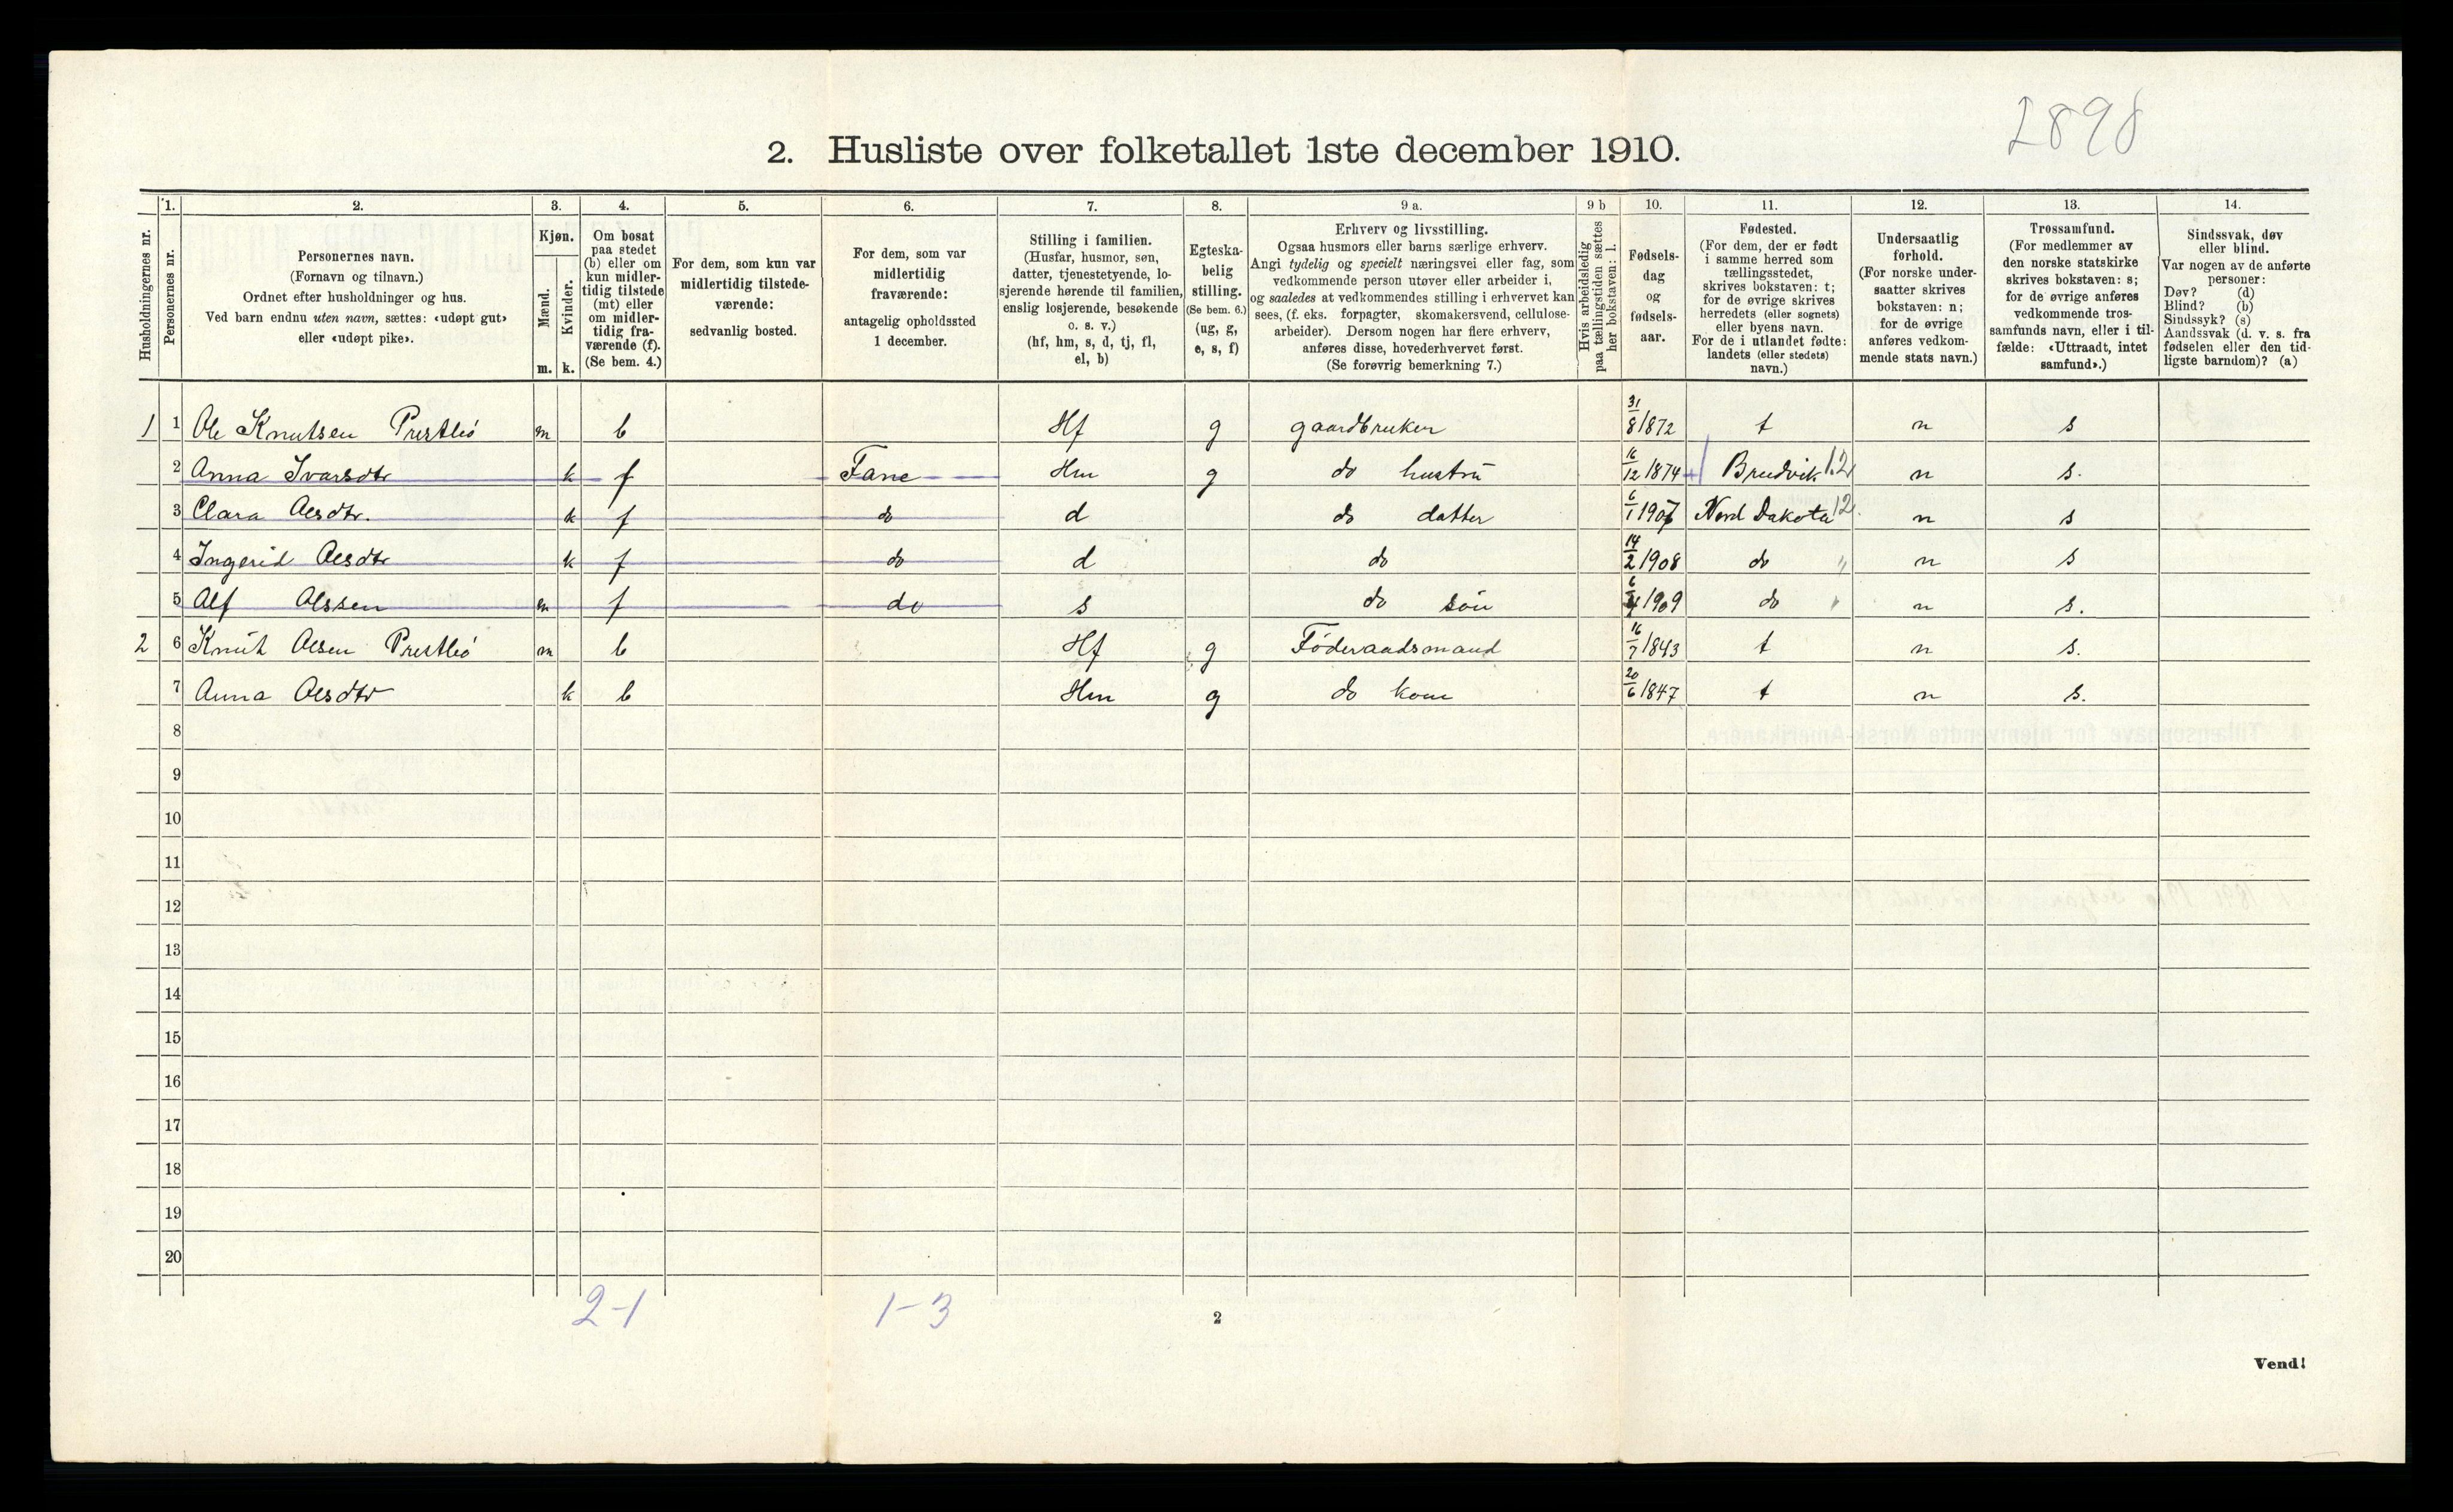 2898
2. Husliste over folketallet 1ste december 1910.
Husholdningernes nr.
1. Personernes nr.
2. Personernes navn. (Fornavn og tilnavn.) Ordnet efter husholdninger og hus. Ved barn endnu uten navn, sættes: «udøpt gut» eller «udøpt pike».
3. Kjøn. Mænd. m. Kvinder. k.
4. Om bosat paa stedet (b) eller om kun midlertidig tilstede (mt) eller om midlertidig fraværende (f). (Se bem. 4.)
5. For dem, som kun var midlertidig tilstedeværende: sedvanlig bosted.
6. For dem, som var midlertidig fraværende: antagelig opholdssted 1 december.
7. Stilling i familien. (Husfar, husmor, søn, datter, tjenestetyende, losjerende hørende til familien, enslig losjerende, besøkende o. s. v.) (hf, hm, s, d, tj, fl, el, b)
8. Egteskabelig stilling. (Se bem. 6.) (ug, g, e, s, f)
9 a. Erhverv og livsstilling. Ogsaa husmors eller barns særlige erhverv. Angi tydelig og specielt næringsvei eller fag, som vedkommende person utøver eller arbeider i, og saaledes at vedkommendes stilling i erhvervet kan sees, (f. eks. forpagter, skomakersvend, cellulosearbeider). Dersom nogen har flere erhverv, anføres disse, hovederhvervet først. (Se forøvrig bemerkning 7.)
9 b Hvis arbeidsledig paa tællingstiden sættes her bokstaven: l.
10. Fødselsdag og fødselsaar.
11. Fødested. (For dem, der er født i samme herred som tællingsstedet, skrives bokstaven: t; for de øvrige skrives herredets (eller sognets) eller byens navn. For de i utlandet fødte: landets (eller stedets) navn.)
12. Undersaatlig forhold. (For norske undersaatter skrives bokstaven: n; for de øvrige anføres vedkommende stats navn.)
13. Trossamfund. (For medlemmer av den norske statskirke skrives bokstaven: s; for de øvrige anføres vedkommende trossamfunds navn, eller i tilfælde: «Uttraadt, intet samfund».)
14. Sindssvak, døv eller blind. Var nogen av de anførte personer: Døv? (d) Blind? (b) Sindssyk? (s) Aandssvak (d. v. s. fra fødselen eller den tidligste barndom)? (a)
1 1 Ole Knutsen Prestlió m b Hf g gaardbruker 31/8 1872 t n s
2 Anna Ivarsdtr k f Fane Hm g do hustru 16/12 1874 Bruvik 12 n s.
3 Clara Olesdtr. k f do d do datter 6/1 1907 Nord Dakota 12. n s
4 Ingerid Olesdtr k f do d do 14/2 1908 do " n s
5 Alf Olssen m f do s do søn 1909 do n s.
2 6 Knut Olsen Prestlió m b Hf g Föderaadsmand 16/7 1843 t n s.
7 Anna Olesdtr k b Hm g do kone 20/6 1847 t n s.
8
9
10
11
12
13
14
15
16
17
18
19
20
2-1 1-3
2
Vend!